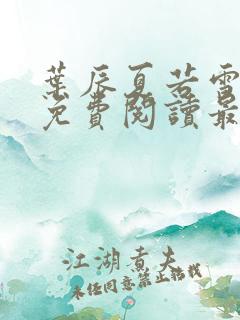 葉辰夏若雪
免費閱讀最
江湖煮夫
未經同意禁止轉載